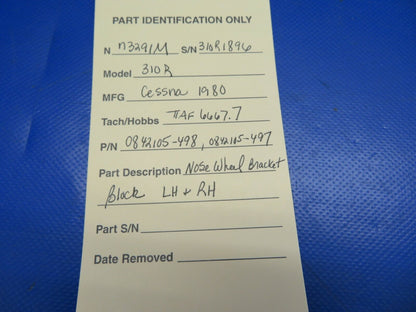 PART IDENTIFICATION ONLY
N n3291M S/N 310R1896
Model 310R
MFG Cessna 1980
Tach/Hobbs TTAF 6667.7
P/N 0842105-498, 0842105-497
Part Description Nose Wheel Bracket
Block LH + RH
Part S/N
Date Removed